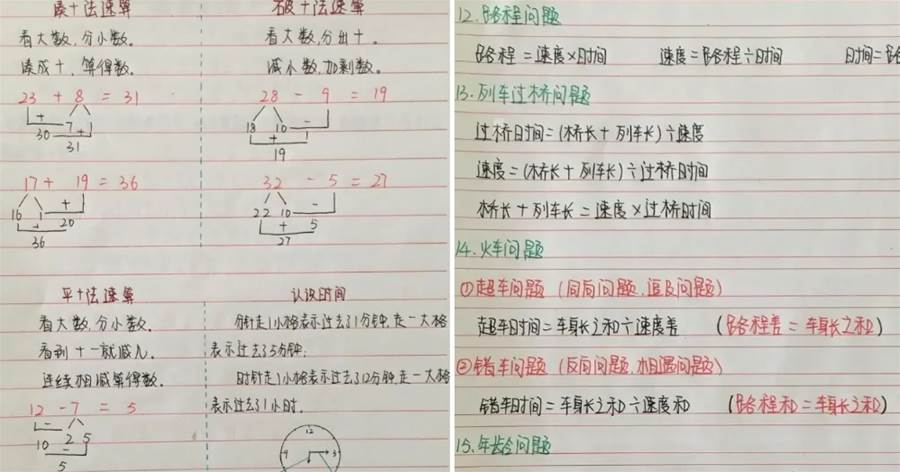 凑十法速算
看大数,分小数。
凑成十,算得数。
23 + 8 = 31
+
7 1
30 +
31
17 + 19 = 36
+
16 1
+ 20
36
破十法速算
看大数,分出十。
减小数,加剩数。
28 - 9 = 19
18 10 -
+ 1
19
32 - 5 = 27
22 10 -
+ 5
27
平十法速算
看大数,分小数。
看到十一就减几。
连续相减算得数。
12 - 7 = 5
-
10 2 5
-
5
认识时间
分针走1小格表示过去了1分钟,走一大格
表示过去了5分钟;
时针走1小格表示过去了12分钟,走一大格
表示过去了1小时.
12
9 3
12.路程问题
路程 = 速度×时间 速度 = 路程÷时间 时间 = 路
13.列车过桥问题
过桥时间 = (桥长 + 列车长) ÷速度
速度 = (桥长 + 列车长) ÷过桥时间
桥长 + 列车长 = 速度×过桥时间
14.火车问题
①超车问题 (同向问题,追及问题)
超车时间 = 车身长之和÷速度差 (路程差 = 车身长之和)
②错车问题 (反向问题,相遇问题)
错车时间 = 车身长之和÷速度和 (路程和 = 车身长之和)
15.年龄问题